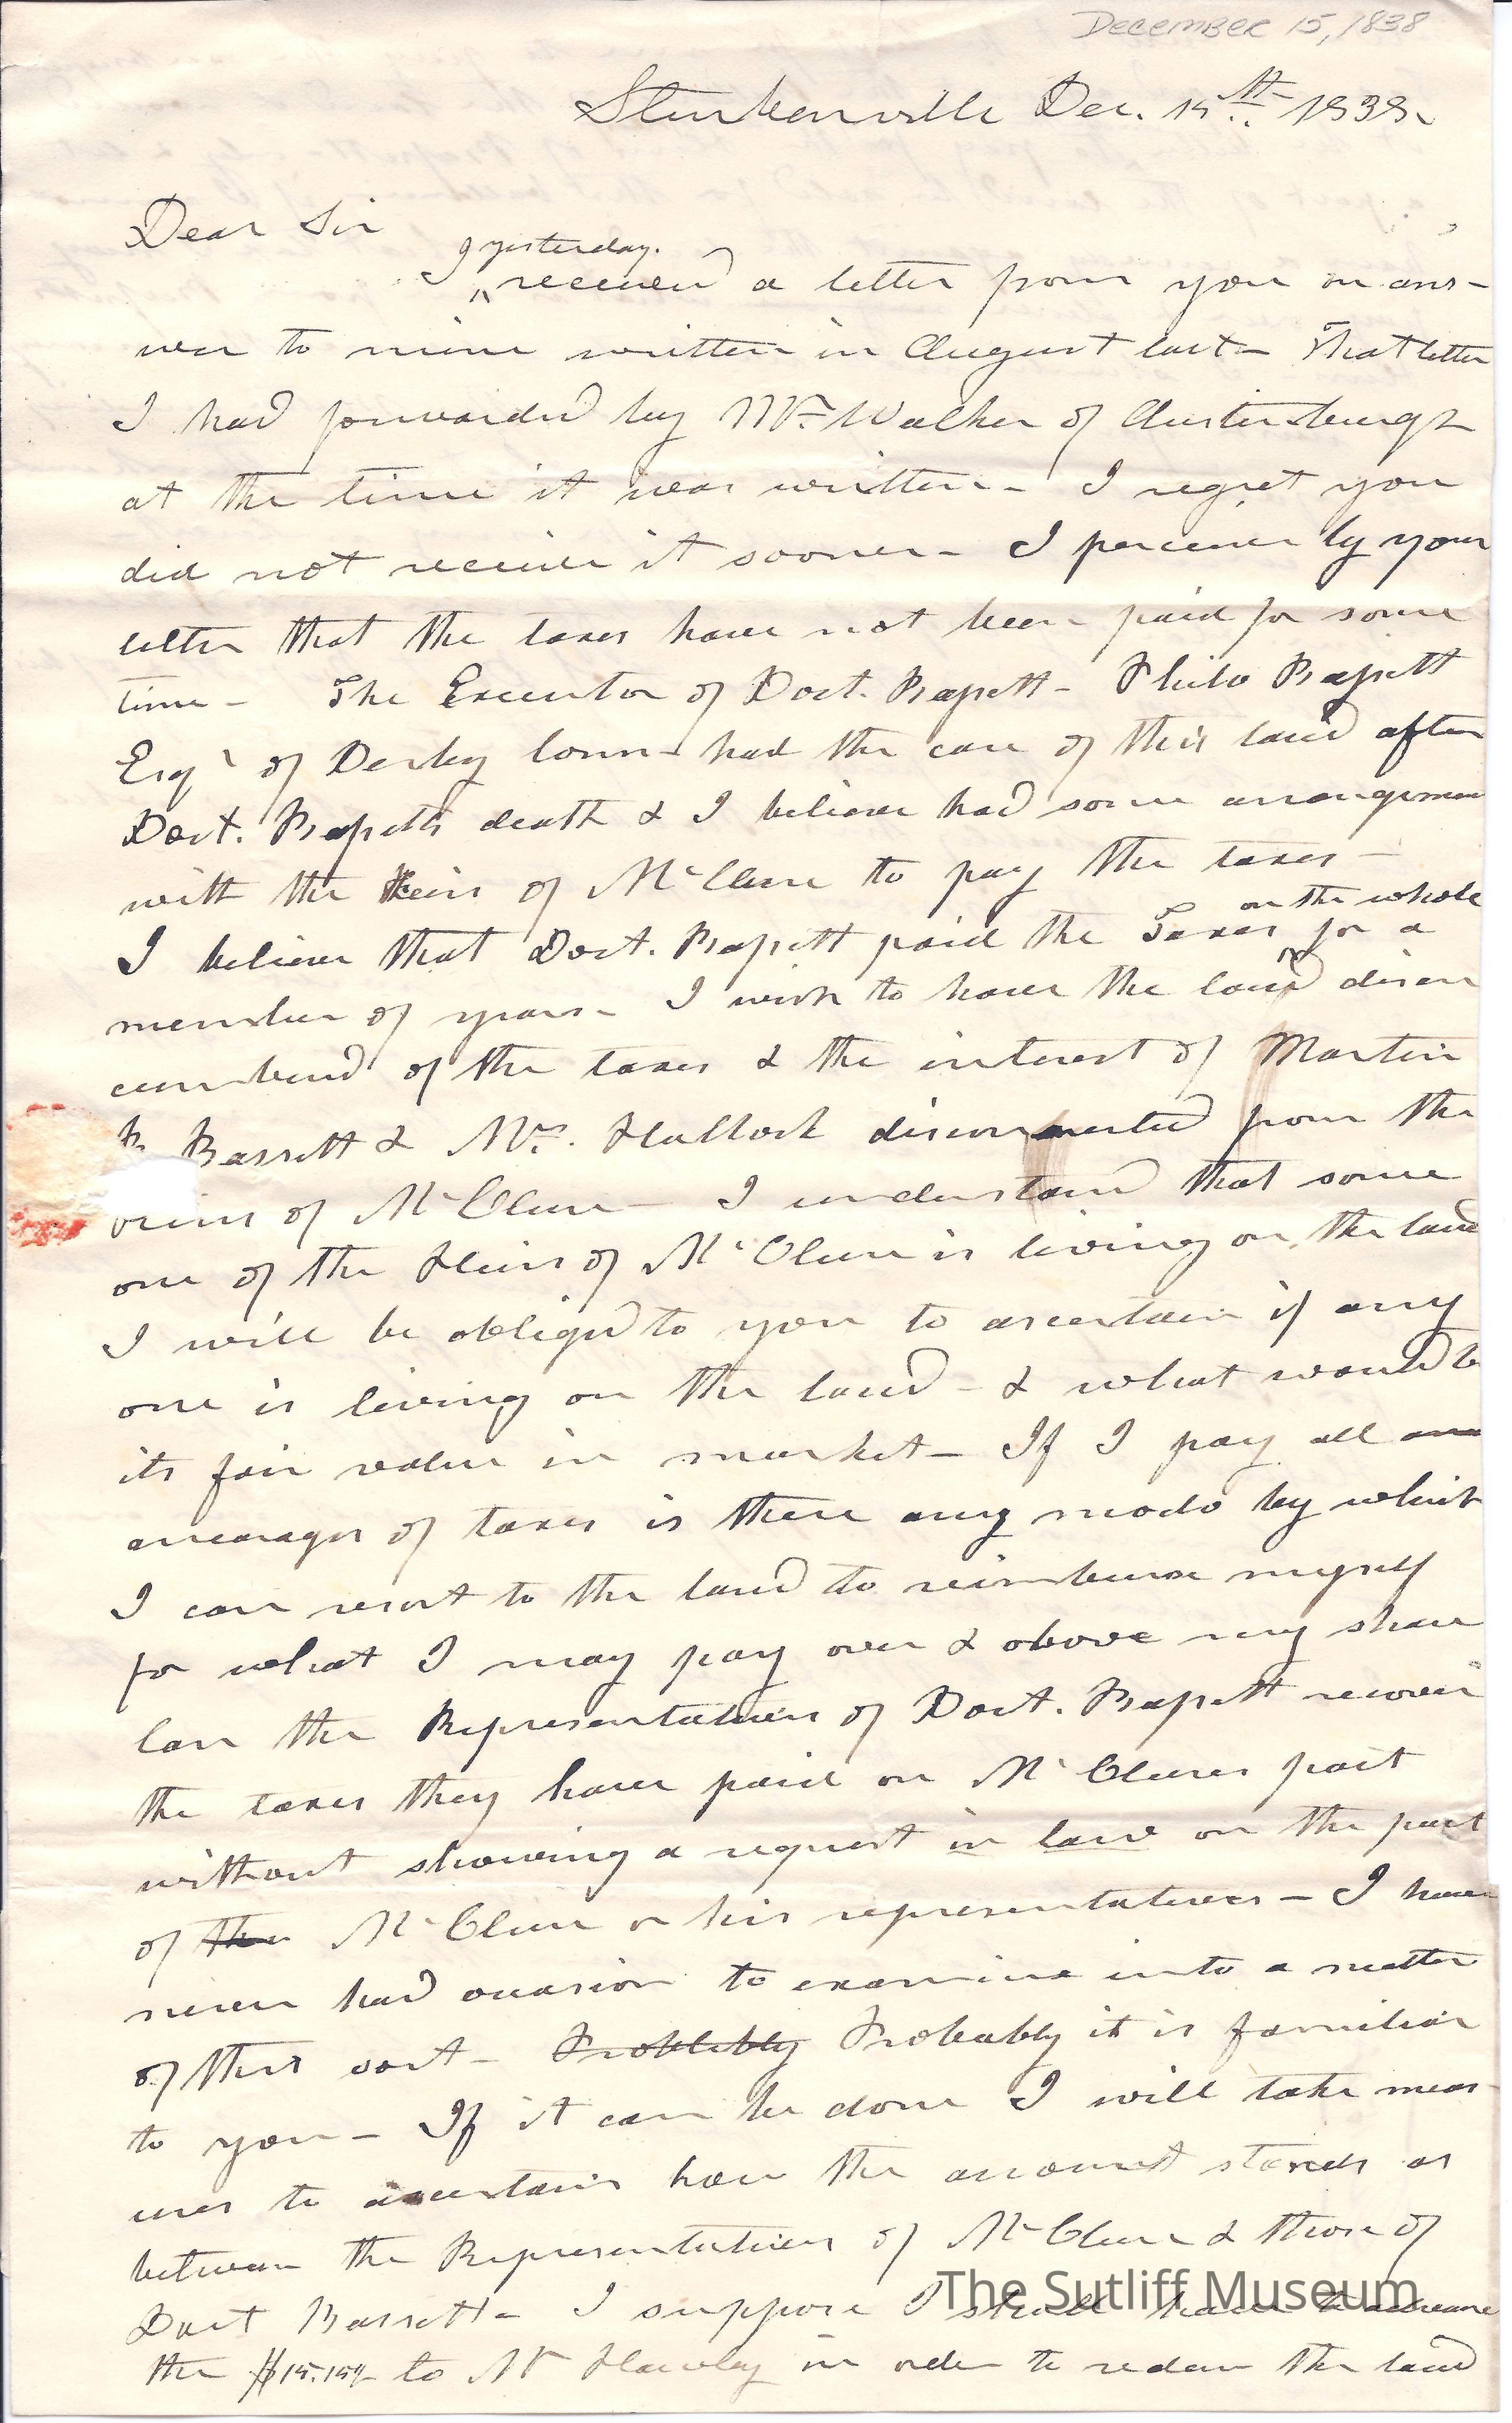 December 15, 1838
Steubenville Dec. 15th 1838.
Dear Sir
yesterday.
I received a letter from you in ans-
wer to mine written in August last - That letter
I had forwarded by Mr. Walker of Austinburgh
at the time it was written - I regret you
did not receive it sooner - I perceive by your
letter that the taxes have not been paid for some
time - The Executor of Doct. Bassett - Philo Bassett
Esqr of Derby Conn - had the care of this land after
Doct. Bassetts death & I believe had some arrangemen
with the heirs of McClure to pay the taxes -
on the whole
I believe that Doct. Bassett paid the Taxes for a
number of years - I wish to have the land disen
cumbered of the taxes & the interest of Martin
B. Bassett & Mrs. Hullock disconnected from the
of McClure - I understand that some
one of the Heirs of McClure is living on the land
I will be obliged to you to ascertain if any
one is living on the land - & what would be
its fair value in market - If I pay all
arrearages of taxes is there any mode by which
I can resort to the land to reimburse myself
for what I may pay over & above my share
Can the Representatives of Doct. Bassett recover
the taxes they have paid on McClures part
without showing a request in law on the part
of the McClure or his representatives - I have
never had occasion to examine into a matter
of this sort - Problebly Probably it is familiar
to you - If it can be done I will take meas-
ures to ascertain how the account stands as
between the Representatives of McClure & those of
Doct Bassett - I suppose I shall have to advance
the $15.15½ to Mr Hawley in order to redeem the land
The Sutliff Museum